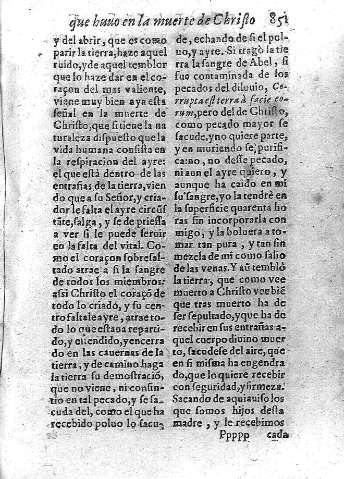 que huuo en la muerte de Christo 851
y del abrir, que es como
parir la tierra, haze aquel
ruido, y de aquel temblor
que lo haze dar en el co-
raçon del mas valiente,
viene muy bien aya esta
señal en la muerte de
Christo, que si tiene la na
turaleza dispuesto que la
vida humana consista en
la respiracion del ayre:
el que está dentro de las
entrañas de la tierra, vien
do que a su Señor, y cria-
dor le falta el ayre circũs
tãte, salga, y se de priessa
a ver si le puede seruir
en la falta del vital. Co-
mo el coraçon sobresal-
tado atrae a si la sangre
de todos los miembros:
assi Christo el coraçõ de
todo lo criado, y su cen-
tro faltale ayre, atrae to-
do lo que estaua reparti-
do, y ofendido, y encerra
do en las cauernas de la
tierra, y de camino haga
la tierra su demostració,
que no viene, ni consin-
tio en tal pecado, y se sa-
cuda del, como el que ha
recebido poluo lo sacu-
de, echando de si el pol-
uo, y ayre. Si tragò la tie
rra la sangre de Abel, si
fue contaminada de los
pecados del diluuio, Co-
rrupta est terra à facie eo-
rum, pero del de Christo,
como pecado mayor se
sacude, y no quiere parte,
y en muriendo se purifi-
ca: no, no desse pecado,
ni aun el ayre quiero, y
aunque ha caido en mi
su sangre, yo la tendrè en
la superficie quarenta ho
ras sin incorporarla con
migo, y la boluera a to-
mar tan pura, y tan sin
mezcla de mi como salio
de las venas. Y aũ tembló
la tierra, que como vee
muerto a Christo vee biẽ
que tras muerto ha de
ser sepultado, y que ha de
recebir en sus entrañas a-
quel cuerpo diuino muer
to, sacudese del aire, que
en si misma ha engendra
do, que lo quiere recebir
con seguridad, y firmeza.
Sacando de aqui auiso los
que somos hijos desta
madre, y le recebimos
Ppppp cada